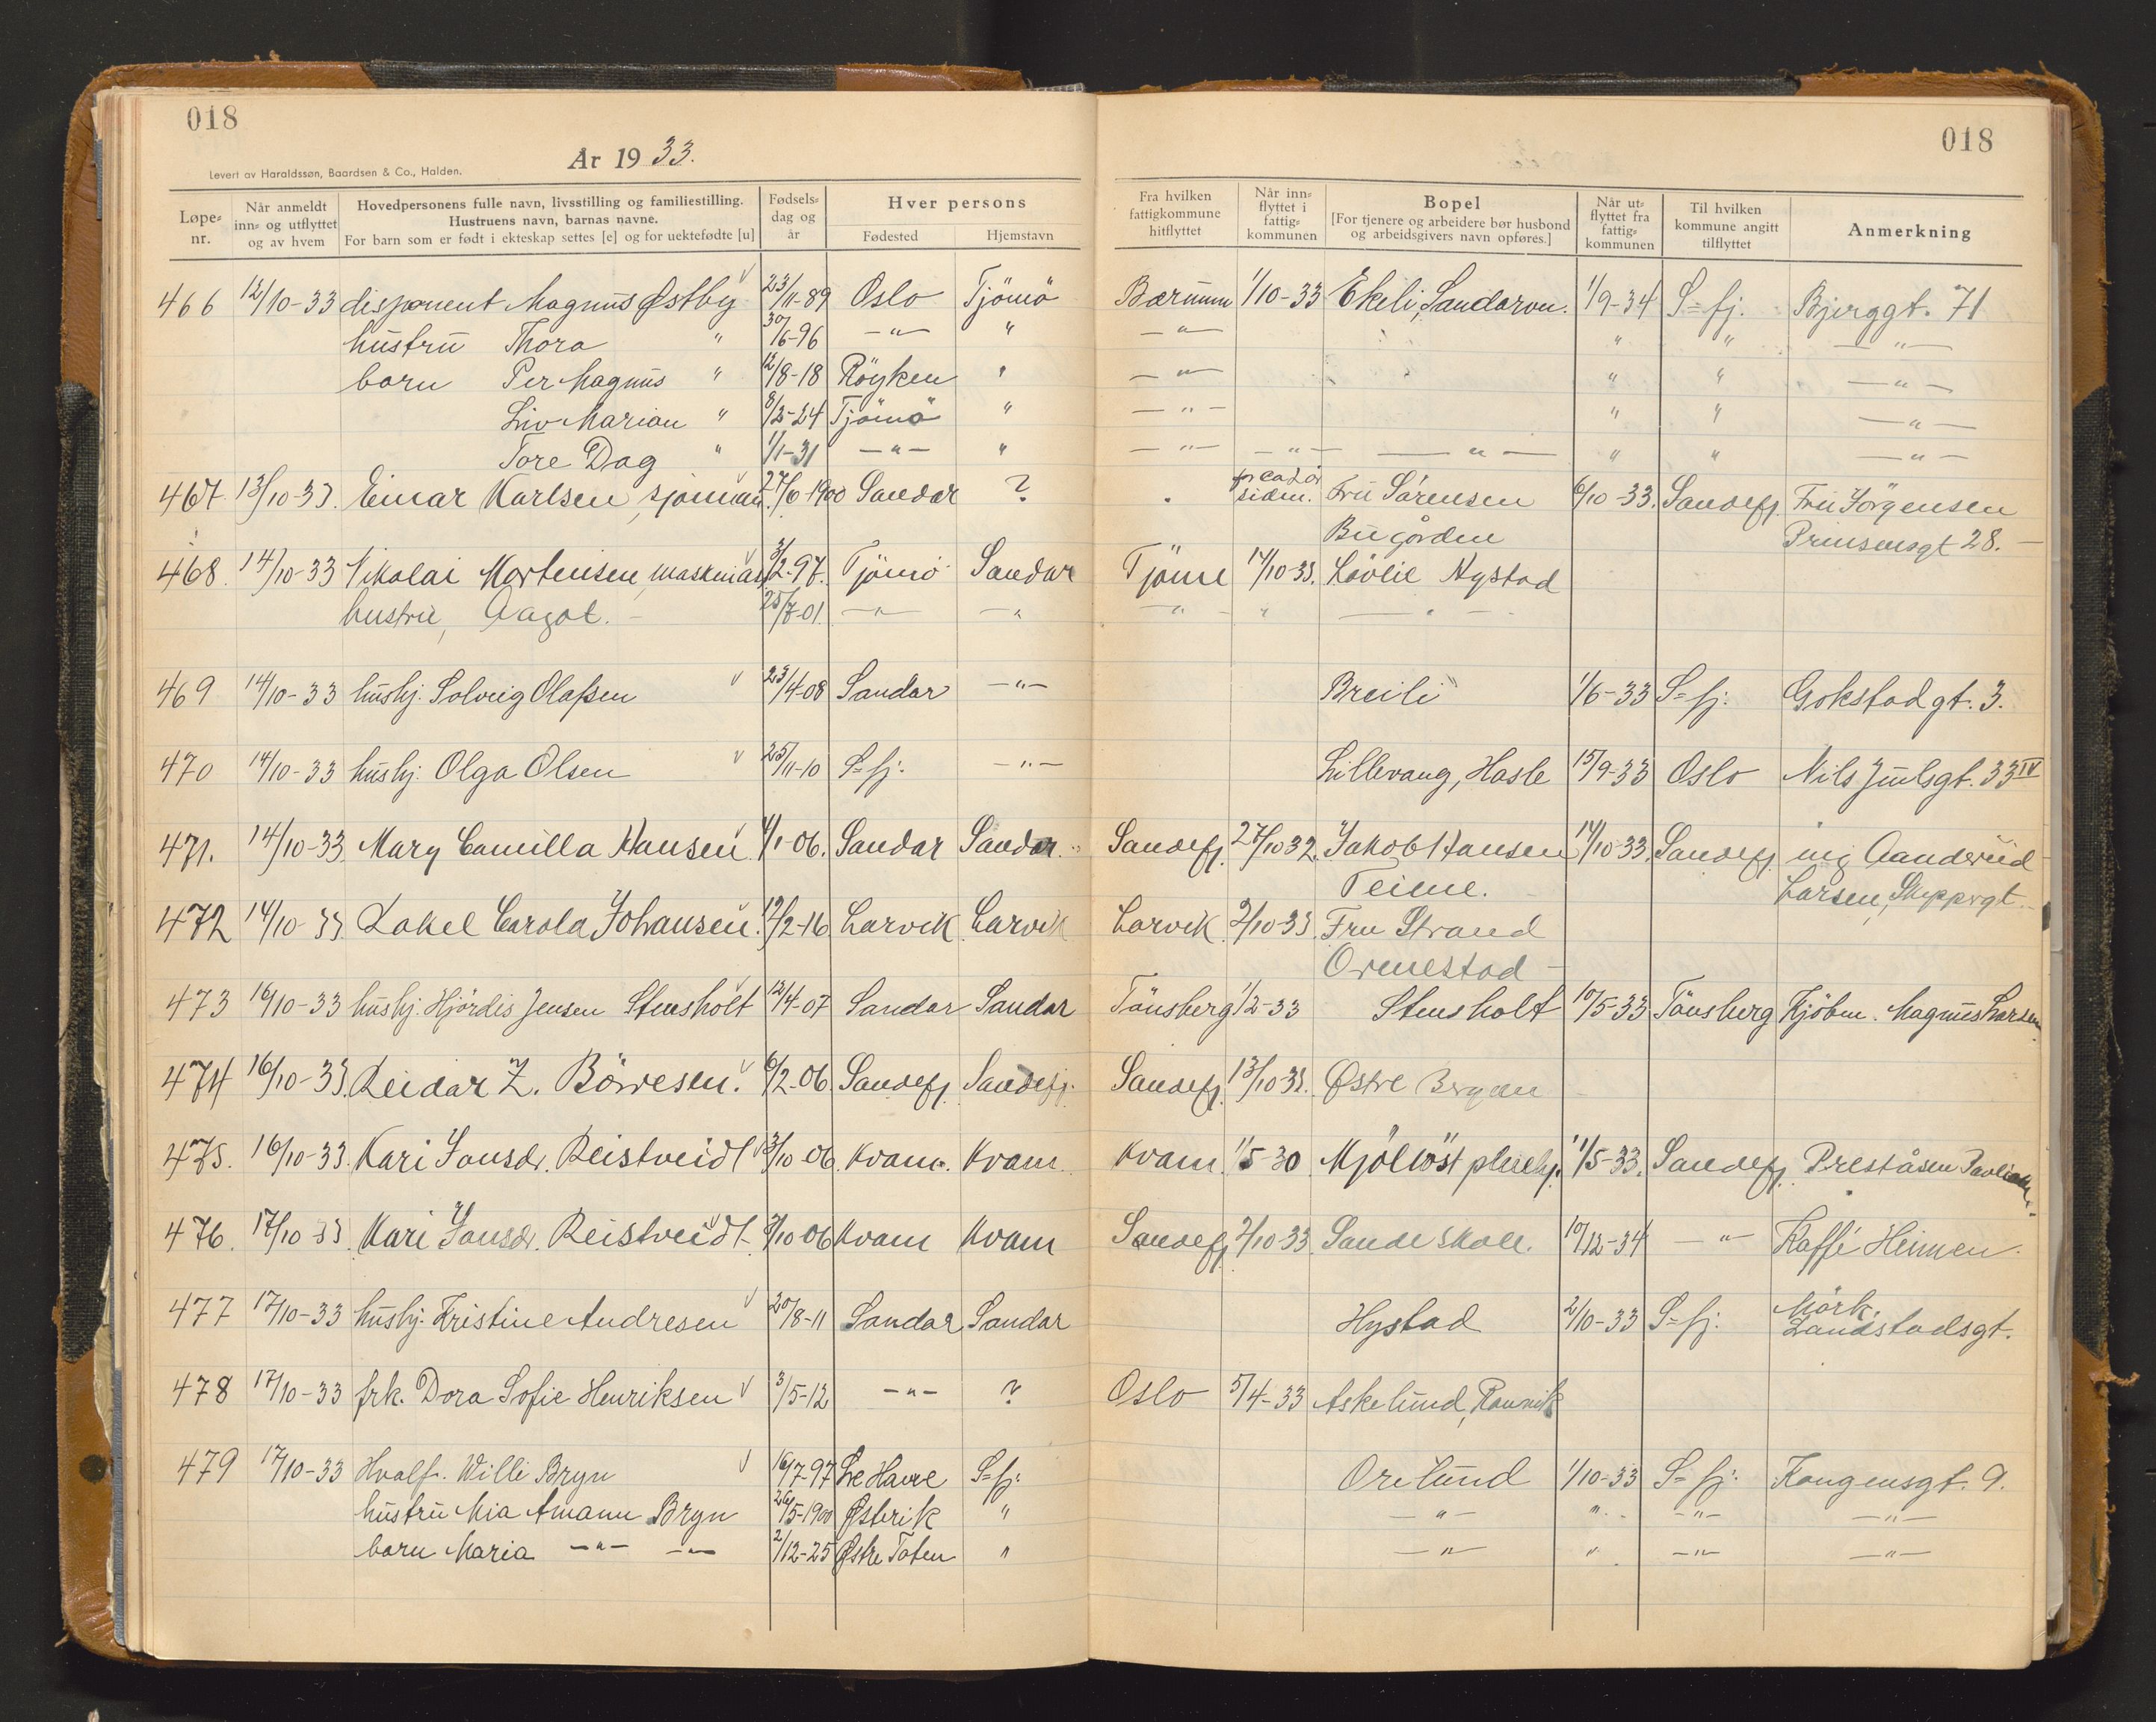 018
År 1933.
Levert av Haraldssøn, Baardsen & Co., Halden.
Løpe-nr.
Når anmeldt inn- og utflyttet og av hvem
Hovedpersonens fulle navn, livsstilling og familiestilling.
Hustruens navn, barnas navne.
For barn som er født i ekteskap settes [e] og for uektefødte [u]
Fødsels-dag og år
Hver persons
Fødested
Hjemstavn
018
Fra hvilken fattigkommune hitflyttet
Når inn-flyttet i fattig-kommunen
Bopel
[For tjenere og arbeidere bør husbond og arbeidsgivers navn opføres.]
Når ut-flyttet fra fattig-kommunen
Til hvilken kommune angitt tilflyttet
Anmerkning
466 12/10-33 disponent Magnus Østby 23/11-89 Oslo Tjömö Bærum 1/10-33 Ekeli, Sandarvn. 1/9-34 S=fj. Bjerggt. 71
hustru Thora " 30/6-96 -"- " -"- " " -"-
barn Per Magnus " 12/8-18 Röyken " -"- " " -"-
Liv Marian " 8/2-24 Tjömö " -"- " " -"-
Tore Dag " 1/1-31 -"- " -"- -"- -"- " " -"-
467. 13/10-33. Einar Karlsen, sjömann. 27/6-1900 Sandar ? " sidn. Fru Sörensen 6/10-33. Sandefj. Fru Jörgensen
Bugården Prinsensgt 28. -
468. 14/10-33 Nikolai Mortensen, 3/2-97. Tjömö Sandar Tjöme 14/10-33. Lövlie Nystad
hustru, Aagot. - 25/7-01. -"- -"- -"- " -"-
469 14/10-33 hushj. Solveig Olaßen 23/4-08 Sandar -"- Breili 1/6-33 S=fj. Gokstadgt. 3.
470 14/10-33 hushj. Olga Olsen 25/11-10 S=fj. -"- Lillevang, Hasle 15/9-33 Oslo Nils Juulsgt. 33 IV
471. 14/10-33 Mary Camilla Hansen 4/1-06. Sandar Sandar. Sandefj. 27/10 32. Jakob Hansen 14/10-33. Sandefj. ing Aanderud
Teime. Larsen, Skippergt.
472 14/10-33. Rakel Carola Johansen. 19/2-16 Larvik Larvik Larvik 2/10-33. Fru Strand
Ormestad -
473 16/10-33 hushj. Hjördis Jensen Stensholt 12/4-07 Sandar Sandar Tönsberg 1/2-33 Stensholt 10/5-33 Tönsberg Kjöbm. Magnus Larsen
474 16/10-33. Reidar Z. Börresen. 6/2-06 Sandefj. Sandefj. Sandefj. 13/10 33. Østre Bergan
475. 16/10-33. Kari Jonsdr. Reistveidt 3/10-06. Kvam. Kvam. Kvam. 1/5-30 Mjöllöst pleiehj. 1/5-33. Sandefj. Preståsen
476. 17/10 33. Kari Jonsdr. Reistveidt 3/10 06 Kvam Kvam Sandefj. 2/10-33. Sande skole. 10/12-34 -"- Kaffé Heimen.
477 17/10-33 hushj. Kristine Andresen 20/8-11 Sandar Sandar Hystad 2/10-33 S=fj. Mörk. Landstadsgt.
478 17/10-33 frk. Dora Sofie Henriksen 3/5-12 -"- ? Oslo 5/4-33 Askelund, Ranvik
479 17/10-33 Hvalf. Willi Bryn 16/7-97 Le Havre S=fj. Orelund 1/10-33 S=fj. Kongensgt. 9.
hustru Mia Amann Bryn 26/5-1900 Østerik " -"- " -"- -"-
barn Maria -"- -"- 2/12-25 Østre Toten " -"- " -"- -"-